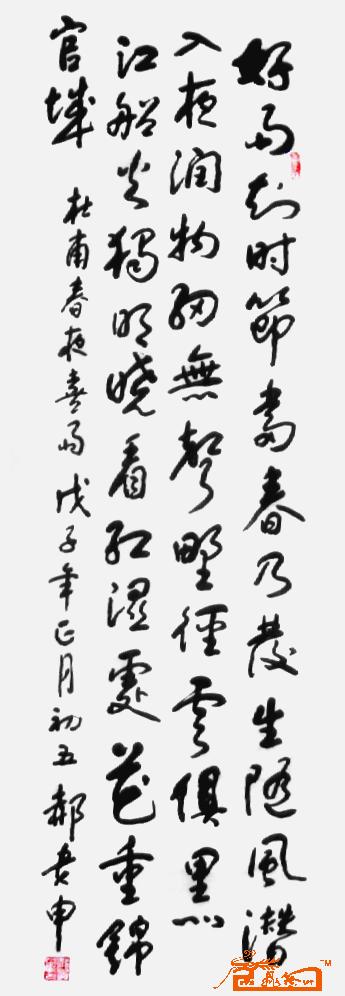 好雨知时節當春乃發生隨風潜
入夜潤物細無聲野徑雲俱黑
江船火獨明曉看紅濕處花重錦
官城 杜甫春夜喜雨 戊子年正月初五 郝申